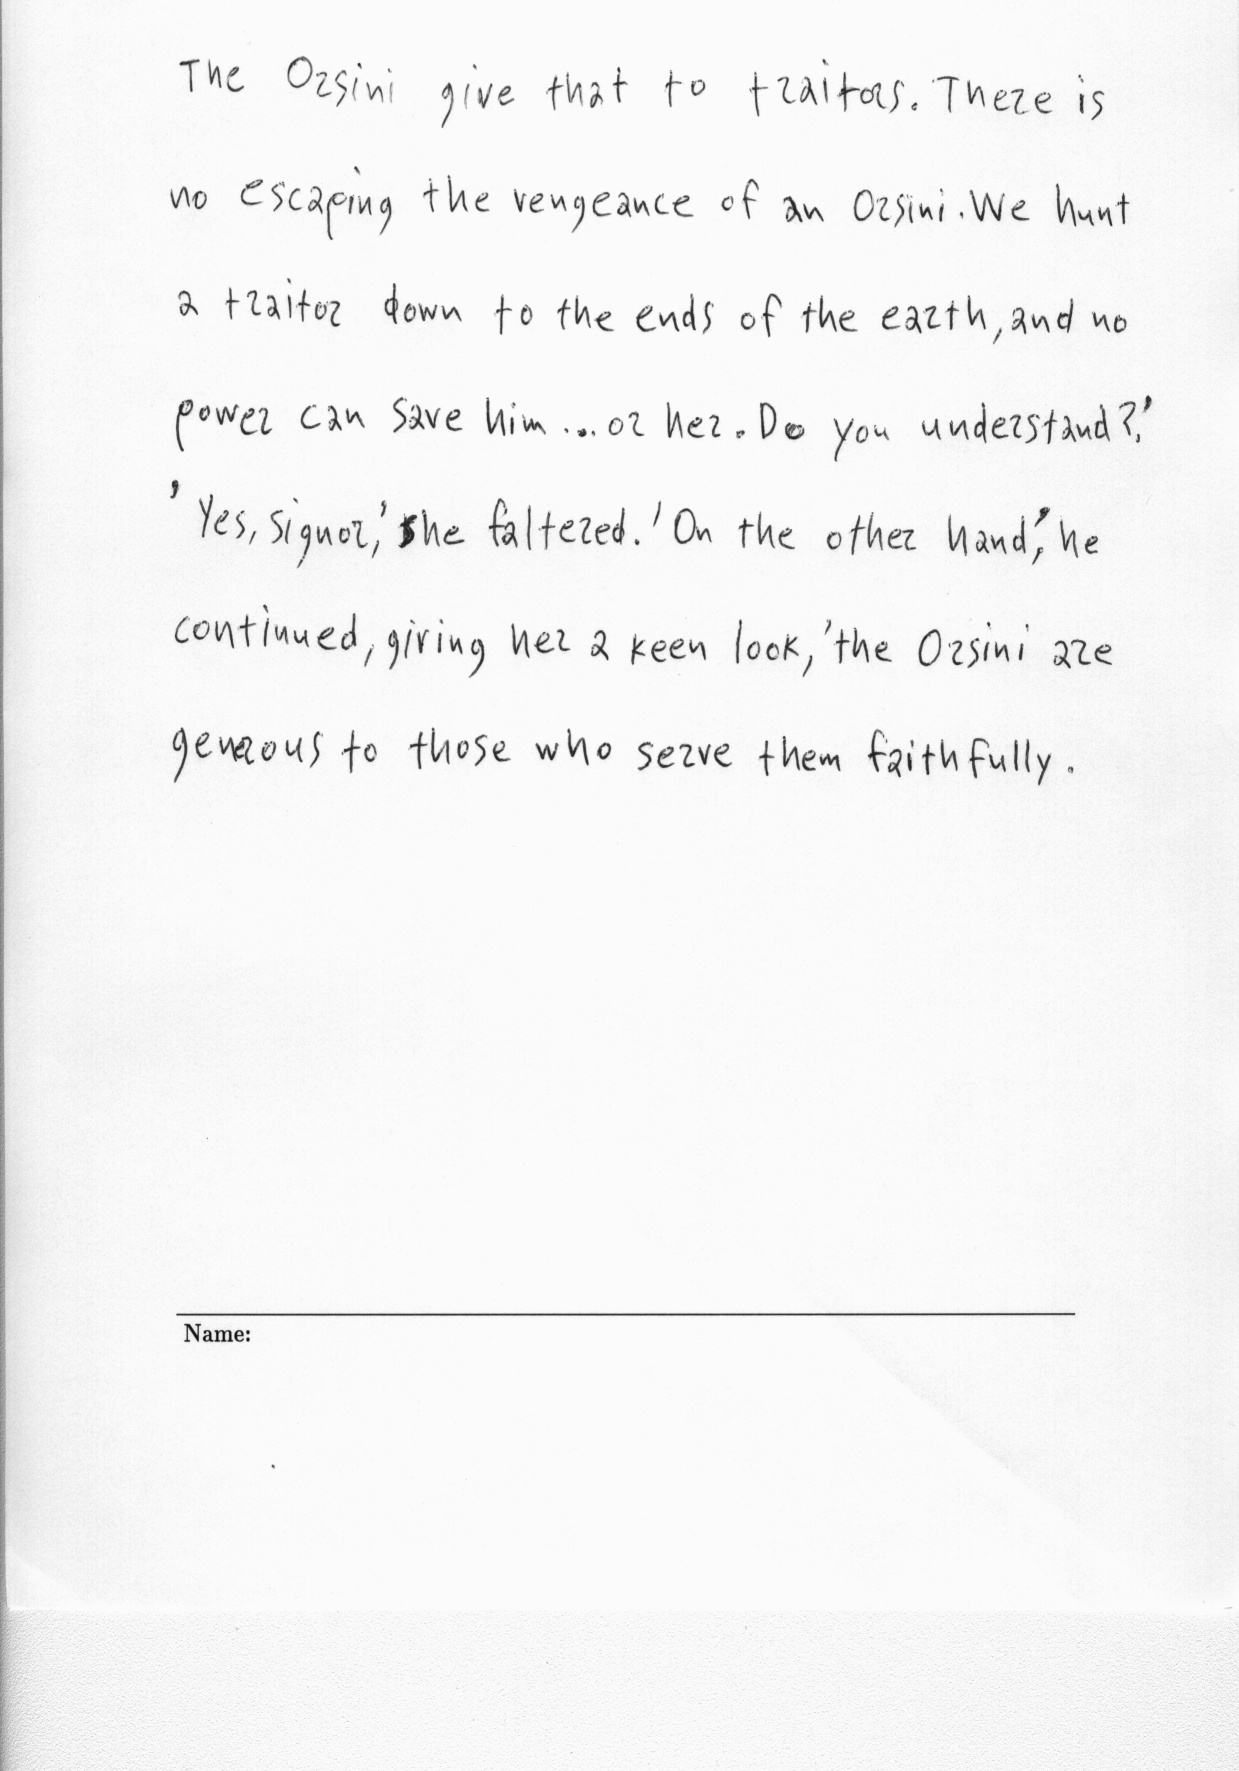 The Orsini give that to traitors. There is
no escaping the vengeance of an Orsini. We hunt
a traitor down to the ends of the earth, and no
power can save him... or her. Do you understand?,'
'Yes, Signor,' she faltered. 'On the other hand,' he
continued, giving her a keen look, 'the Orsini are
generous to those who serve them faithfully.
Name: